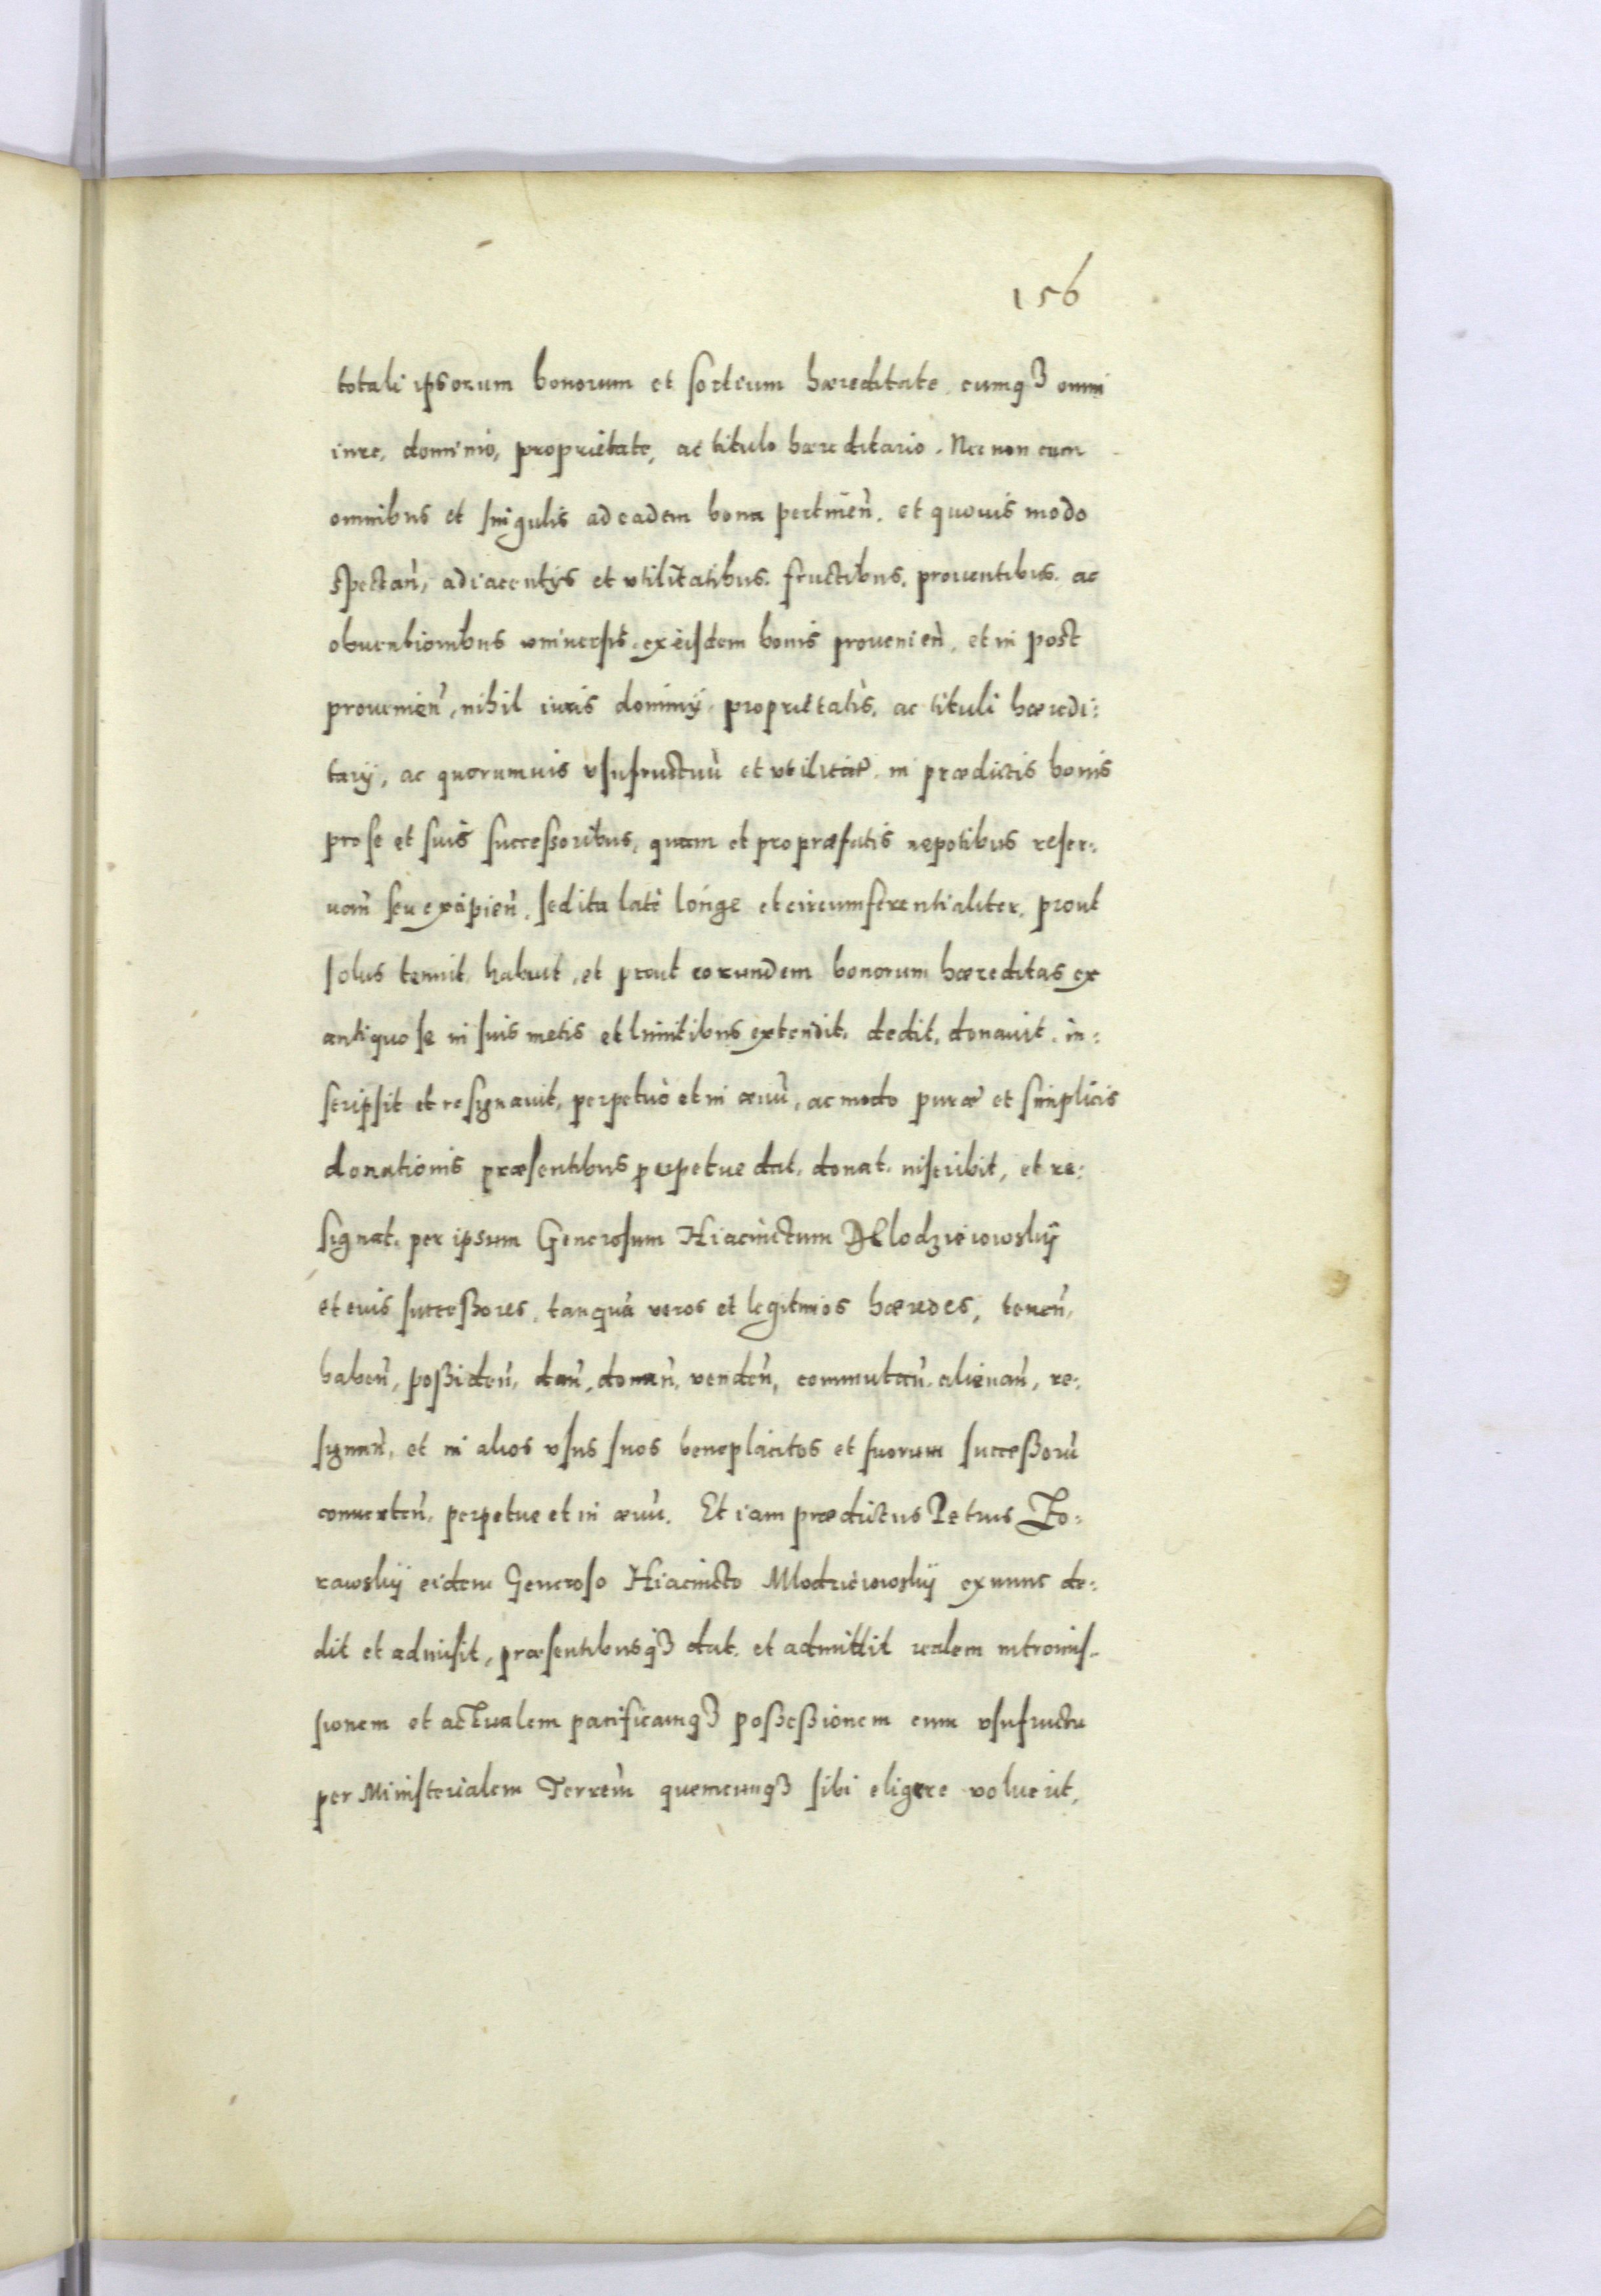 156
totali ipsorum bonorum et sortium hæreditate, cumqꝫ omni
iure, dominio, proprietate, ac titulo hæreditario. Nec non cum
omnibus et singulis ad eadem bona pertinen̄. et quouis modo
spectan̄, adiacentys et vtilitatibus, fructibus, prouentibus, ac
obuentionibus vniuersis, ex eisdem bonis prouenien̄, et in post
prouenien̄, nihil iuris dominij proprietatis, ac tituli hæredi:
tarij, ac quorumuis vsufructuū et vtilitat̄. in prædictis bonis
pro se et suis successoribus, quam et pro præfatis nepotibus reser:
uan̄ seu excipien̄, sed ita latè longe et circumferentialiter, prout
solus tenuit, habuit, et prout eorundem bonorum hæreditas ex
antiquo se in suis metis et limitibus extendit, dedit, donauit, in:
scripsit et resignauit, perpetuò et in æuū, ac modo puræ et simplicis
donationis præsentibus perpetue dat, donat, inscribit, et re:
signat, per ipsum Generosum Hiacinctum Mlodzieiowskij
et euis successores, tanquā veros et legitimos hæredes, tenen̄,
haben̄, possiden̄, dan̄, donan̄, venden̄, commutan̄, alienan̄, re:
signan̄, et in alios vsus suos beneplacitos et suorum successorū
conuerten̄, perpetue et in æuū. Et iam prædictus Petrus To:
rawskij eidem Generoso Hiacincto Mlodzieiowskij ex nunc de:
dit et admisit, præsentibusqꝫ dat, et admittit realem intromis-
sionem et actualem pacificamqꝫ possessionem cum vsufructu
per Ministerialem Terren̄ quemcunqꝫ sibi eligere voluerit,